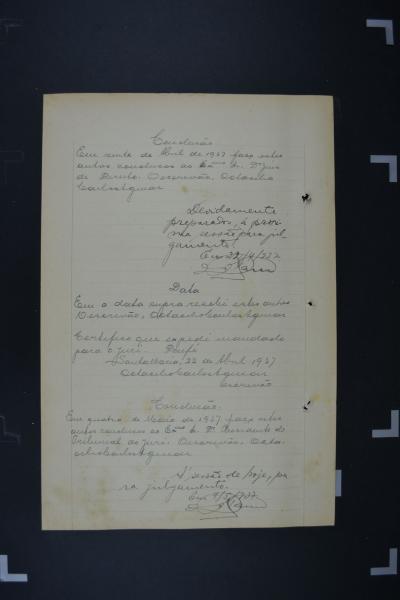 Conclusão.
Em vinte de Abril de 1937 faço estes
autos conclusos ao Exmo Dr Juiz
de Direito. O escrivão, Octacilio
Carlos Aguiar
Devidamente
preparados, á proxi-
ma sessão para jul-
gamento.
Em 22/4/937
Data
Em a data supra recebi estes autos
O escrivão, Octacilio Carlos Aguiar
Certifico que expedi mandado
para o juri. Dou fé
Santa Maria, 22 de Abril 1937
Octacilio Carlos Aguiar
escrivão
Conclusão.
Em quatro de Maio de 1937 faço estes
autos conclusos ao Exmo Dr Presidente do
Tribunal do Juri. O escrivão, Octa-
cilio Carlos Aguiar
A' sessão de hoje, pa-
ra julgamento.
Em 4/5/937